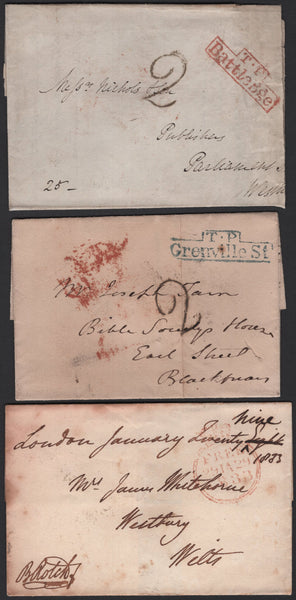 T.P
Battlebge
2
Messrs Nichols & Son
Publishers
Parliament S
Westm
25-
T.P.
Grenville St
Mr Joseph Tarn
2
Bible Society's House
Earl Street
Blackfriars
nine
London January Twenty eight
1833
FREE
29JA29
1833
Mr James Whitehorne
Westbury
Wilts